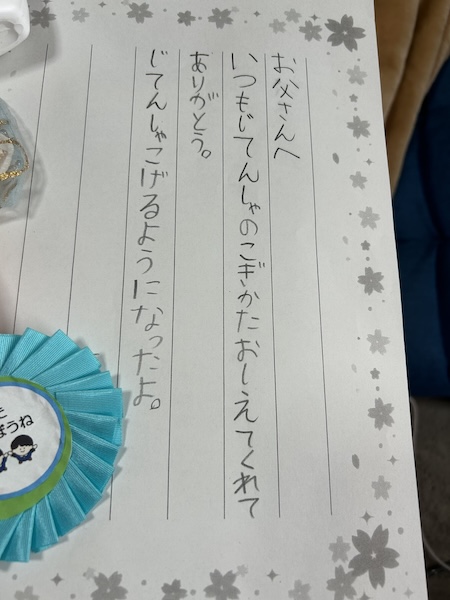 お父さんへ
いつもじてんしゃのこぎかたおーえてくれて
ありがとう。
じてんしゃこげるようになったよ。
うね